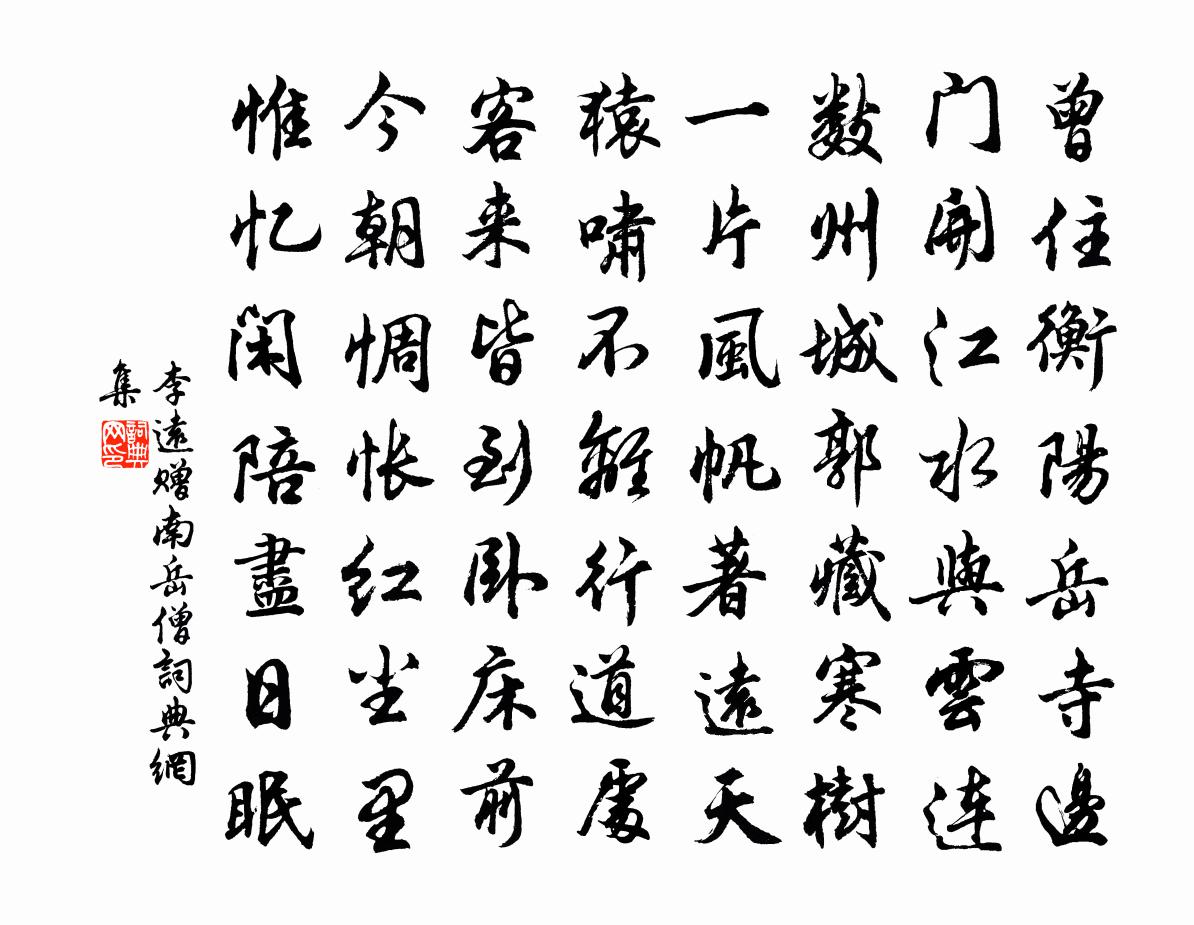 曾住衡陽岳寺邊
门開江水與雲連
数州城郭藏寒樹
一片風帆著遠天
猿啸不離行道處
客来皆到卧床前
今朝惆怅红尘里
惟忆闲陪盡日眠
李遠赠南岳僧詞典網
集
詞典网印